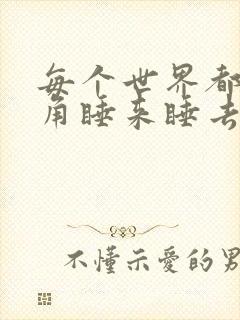 每个世界都
角睡来睡去
不懂示爱的男